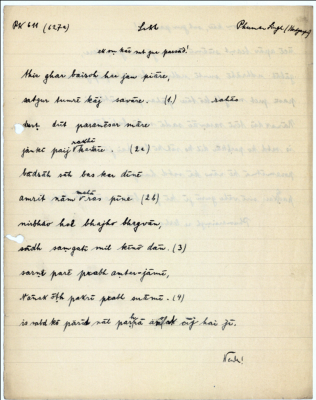 PK 611 (627a) Sikh Phuman Singh
ek on kār sat gur parsād!
thir ghar baisoh har jan piāre,
satgur tumre kāj savāre. (1) rahāo
dusṭ dūt parmēsar māre
jan kī paij rakhī kartāre. (2a)
bādsāh sāh sab vas kar dīnē
amrit nām mahā ras pīne (2b)
nirbhao hoe bhajho bhagvān,
sādh sangati mil kīno dān. (3)
saraṇ pare prabh antarjāmī,
Nānak oṭ pakrī prabh suāmī. (4)
is sabd kā hai jī.